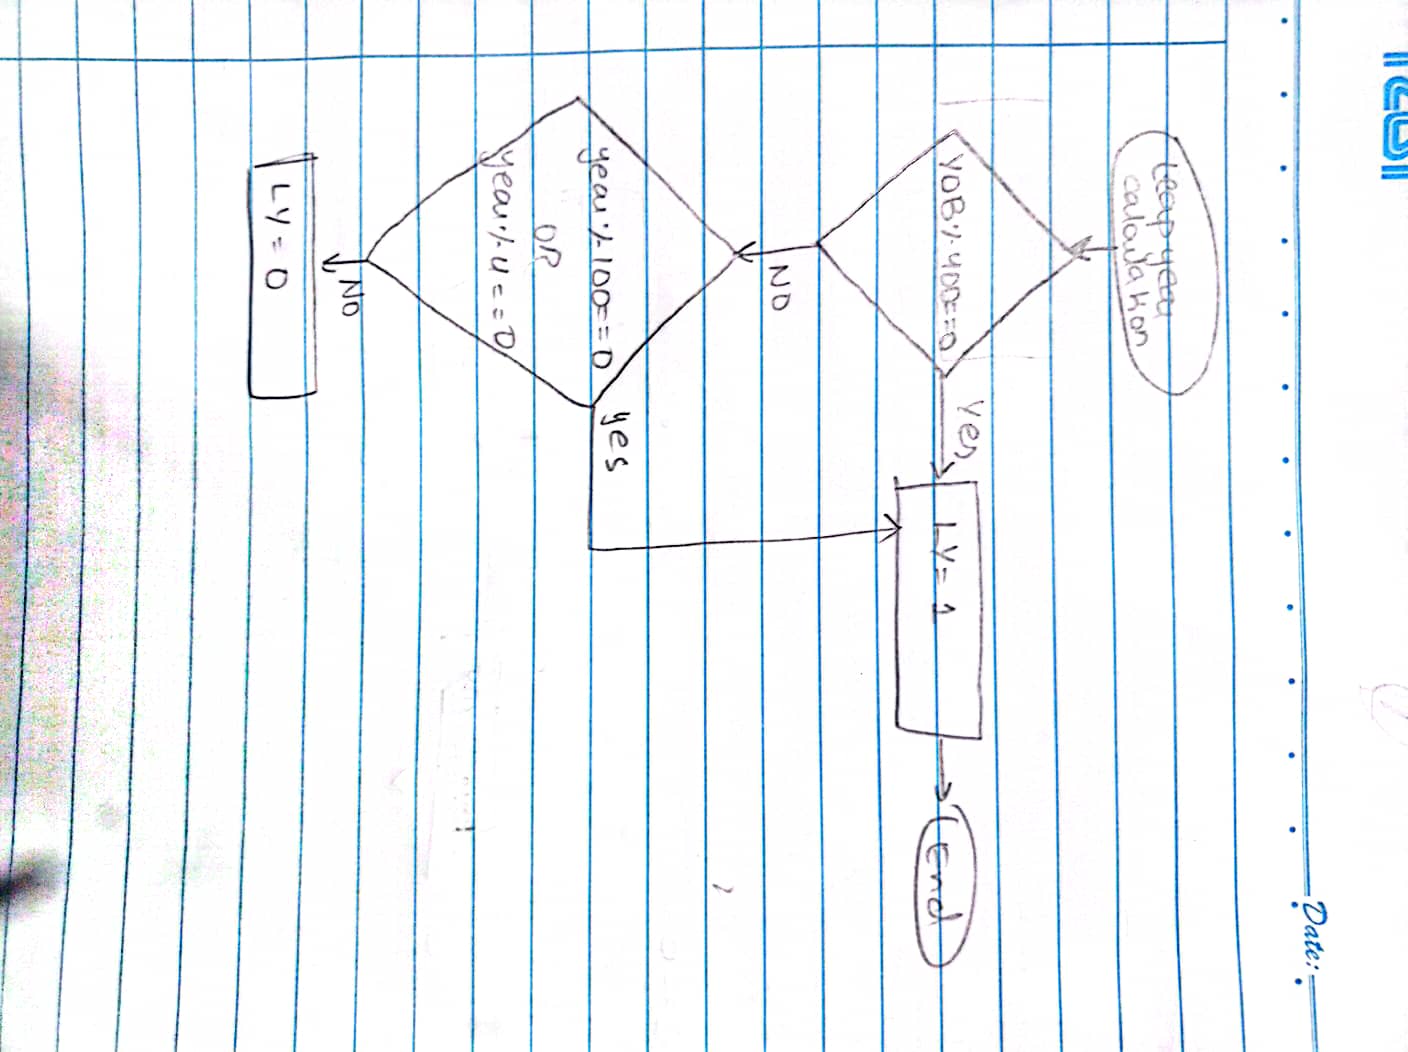 Date:
Leap year
calculation
YOB % 400==0
Yes
LY = 1
End
NO
year % 100==0
OR
year % 4 ==0
yes
NO
LY = 0